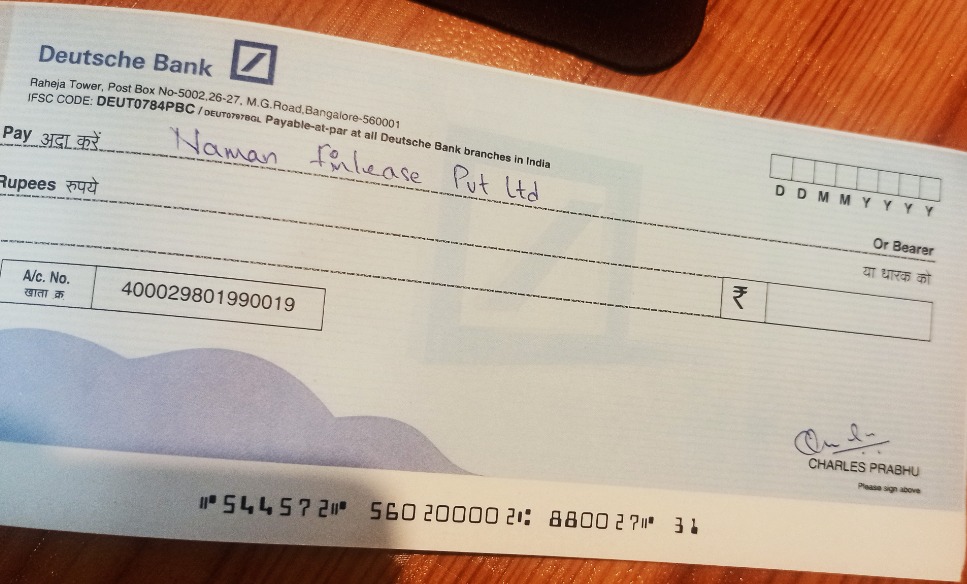 Deutsche Bank
Raheja Tower, Post Box No-5002,26-27, M.G.Road,Bangalore-560001
IFSC CODE: DEUT0784PBC / DEUT0797BGL Payable-at-par at all Deutsche Bank branches in India
Pay अदा करें Naman Finlease Pvt Ltd
D D M M Y Y Y Y
Rupees रुपये
Or Bearer
या धारक को
A/c. No.
खाता क्र
400029801990019
₹
CHARLES PRABHU
Please sign above
⑈544572⑈ 560200002⑆ 880027⑈ 31